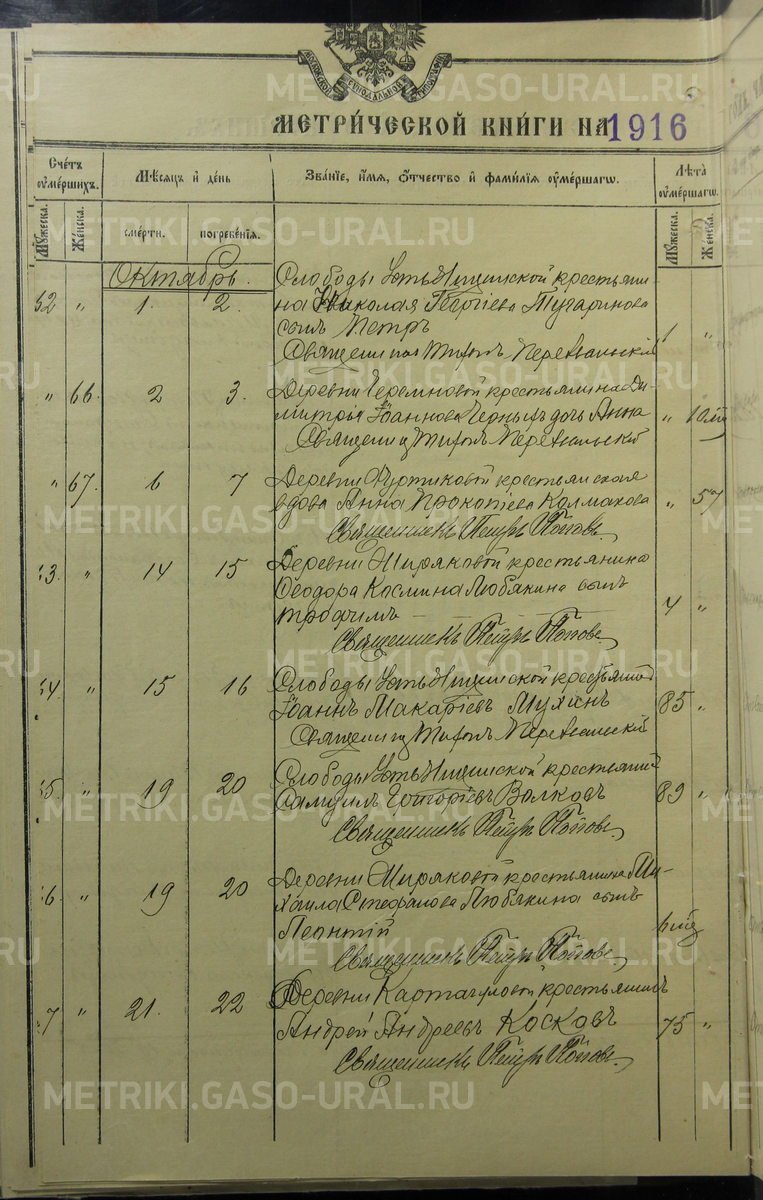 МЕТРИ́ЧЕСКОЙ КНИ́ГИ НА 1916
Счётъ ᲂу҆ме́ршихъ.
Мѣ́сяцъ и҆ де́нь
Зва́нїе, и҆́мя, ѻ҆́тчество и҆ фами́лїя ᲂу҆ме́ршагѡ.
Лѣта̀ ᲂу҆ме́ршагѡ.
Мꙋ́жеска.
Же́нска.
сме́рти.
погребе́нїя.
Мꙋ́жеска.
Же́нска.
Октябрь.
Слободы Усть-Ницинской крестьяни-
52 " 1. 2. на Николая Георгіева Тугаринова
сынъ Петръ 1 "
Священникъ Тихонъ
" 66. 2 3. Деревни крестьянина Ди-
митрія Іоаннова Черныхъ дочь Анна " 10
Священникъ Тихонъ
" 67. 6 7 Деревни крестьянская
вдова Анна Прокопіева Колмакова " 57
Священникъ Петръ Поповъ.
3. " 14 15 Деревни Жиряковой крестьянина
Ѳеодора Космина Любякина сынъ
Трофимъ 4 "
Священникъ Петръ Поповъ.
4. " 15 16 Слободы Усть-Ницинской крестьянинъ
Іоаннъ Макаріевъ Мухинъ 85 "
Священникъ Тихонъ
5. " 19 20 Слободы Усть-Ницинской крестьянинъ
Самуилъ Григоріевъ Волковъ 89 "
Священникъ Петръ Поповъ.
6. " 19 20 Деревни Жиряковой крестьянина Ми-
хаила Стефанова Любякина сынъ
Леонтій
Священникъ Петръ Поповъ.
7 " 21. 22 Деревни крестьянинъ
Андрей Андреевъ Косковъ 75 "
Священникъ Петръ Поповъ.
METRIKI.GASO-URAL.RU